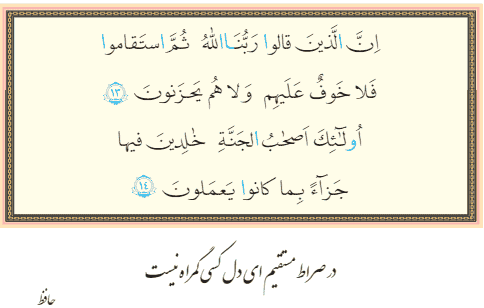 اِنَّ الَّذینَ قالوا رَبُّنَا اللّٰهُ ثُمَّ استَقاموا
فَلا خَوفٌ عَلَیهِم وَ لا هُم یَحزَنونَ ۱۳
اُولٰٓئِکَ اَصحٰبُ الجَنَّةِ خٰلِدینَ فیها
جَزآءً بِما کانوا یَعمَلونَ ۱٤
در صراط مستقیم ای دل کسی گمراه نیست
حافظ